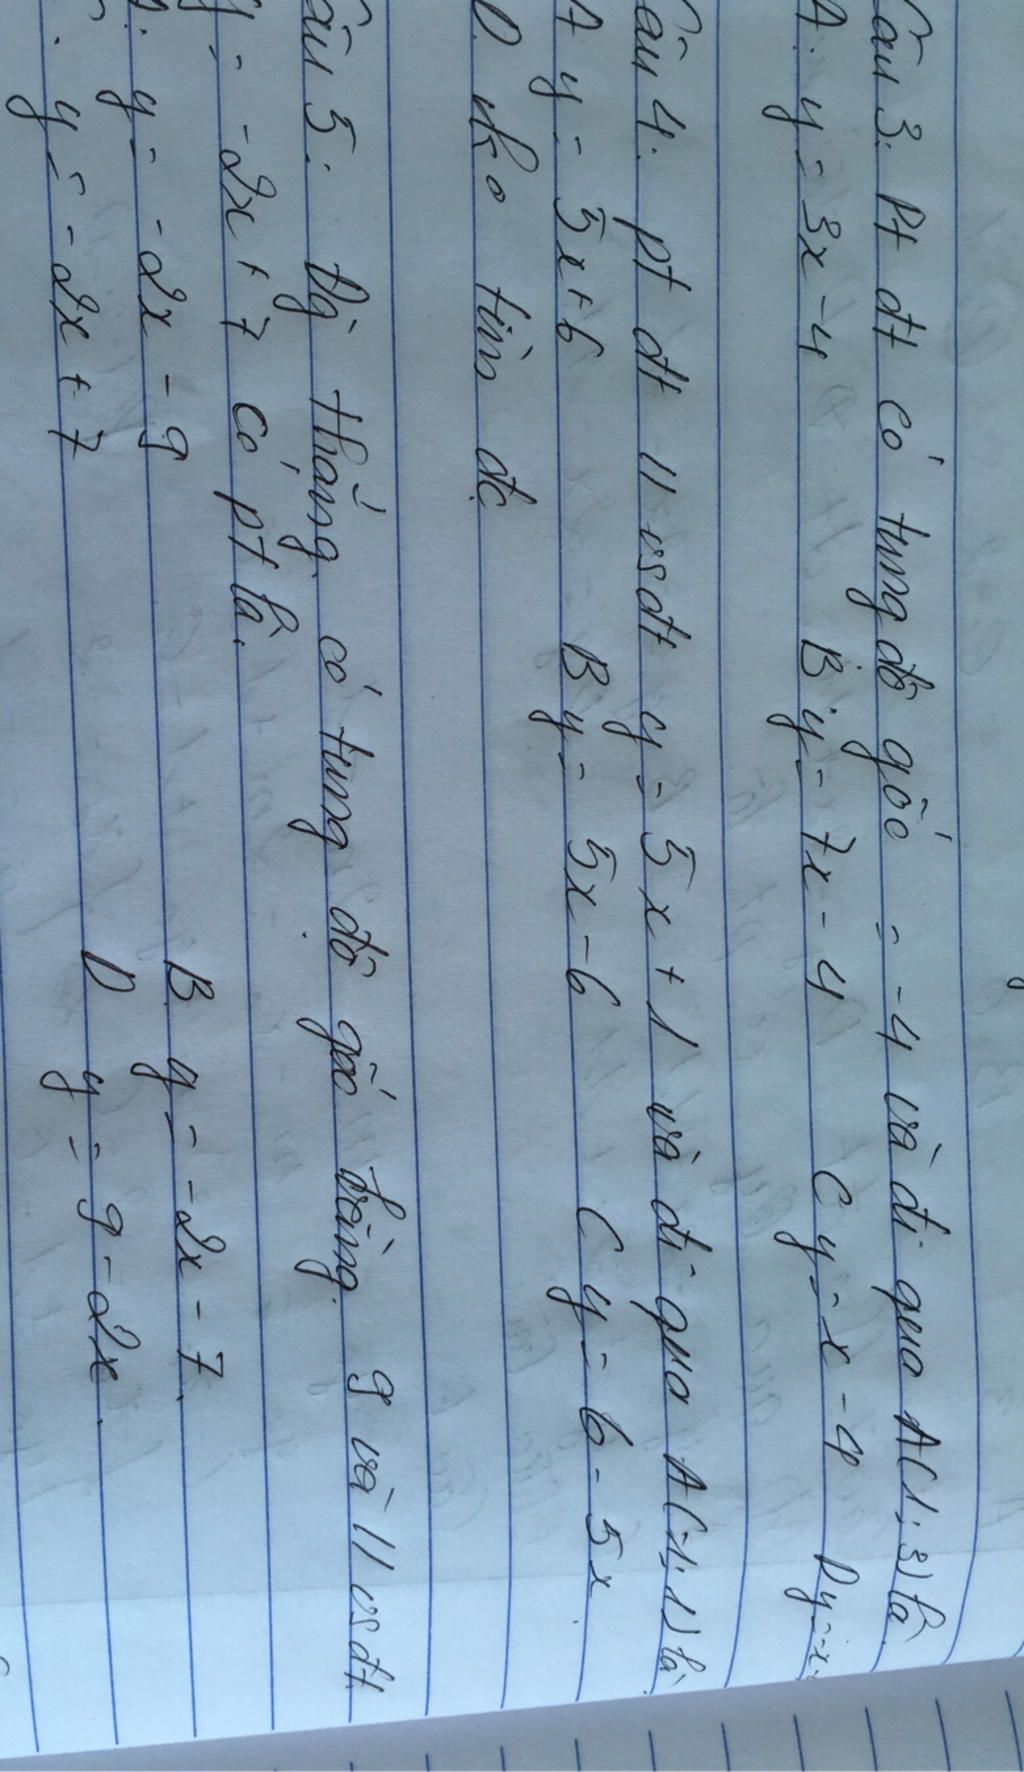 Câu 3. Pt đt có tung độ gốc = -4 và đi qua A(1;3) là
A. y = 3x - 4 B. y = 7x - 4 C y = x - 4 D y = -x
Câu 4. pt đt // vs đt y = 5x + 1 và đi qua A(-1;1) là
A y = 5x + 6 B y = 5x - 6 C y = 6 - 5x
D. ko tìm đc
Câu 5. Đg thẳng có tung độ gốc bằng 9 và // vs đt
y = -2x + 7 có pt là.
A. y = -2x - 9 B y = -2x - 7.
C. y = -2x + 7 D y = 9 - 2x.